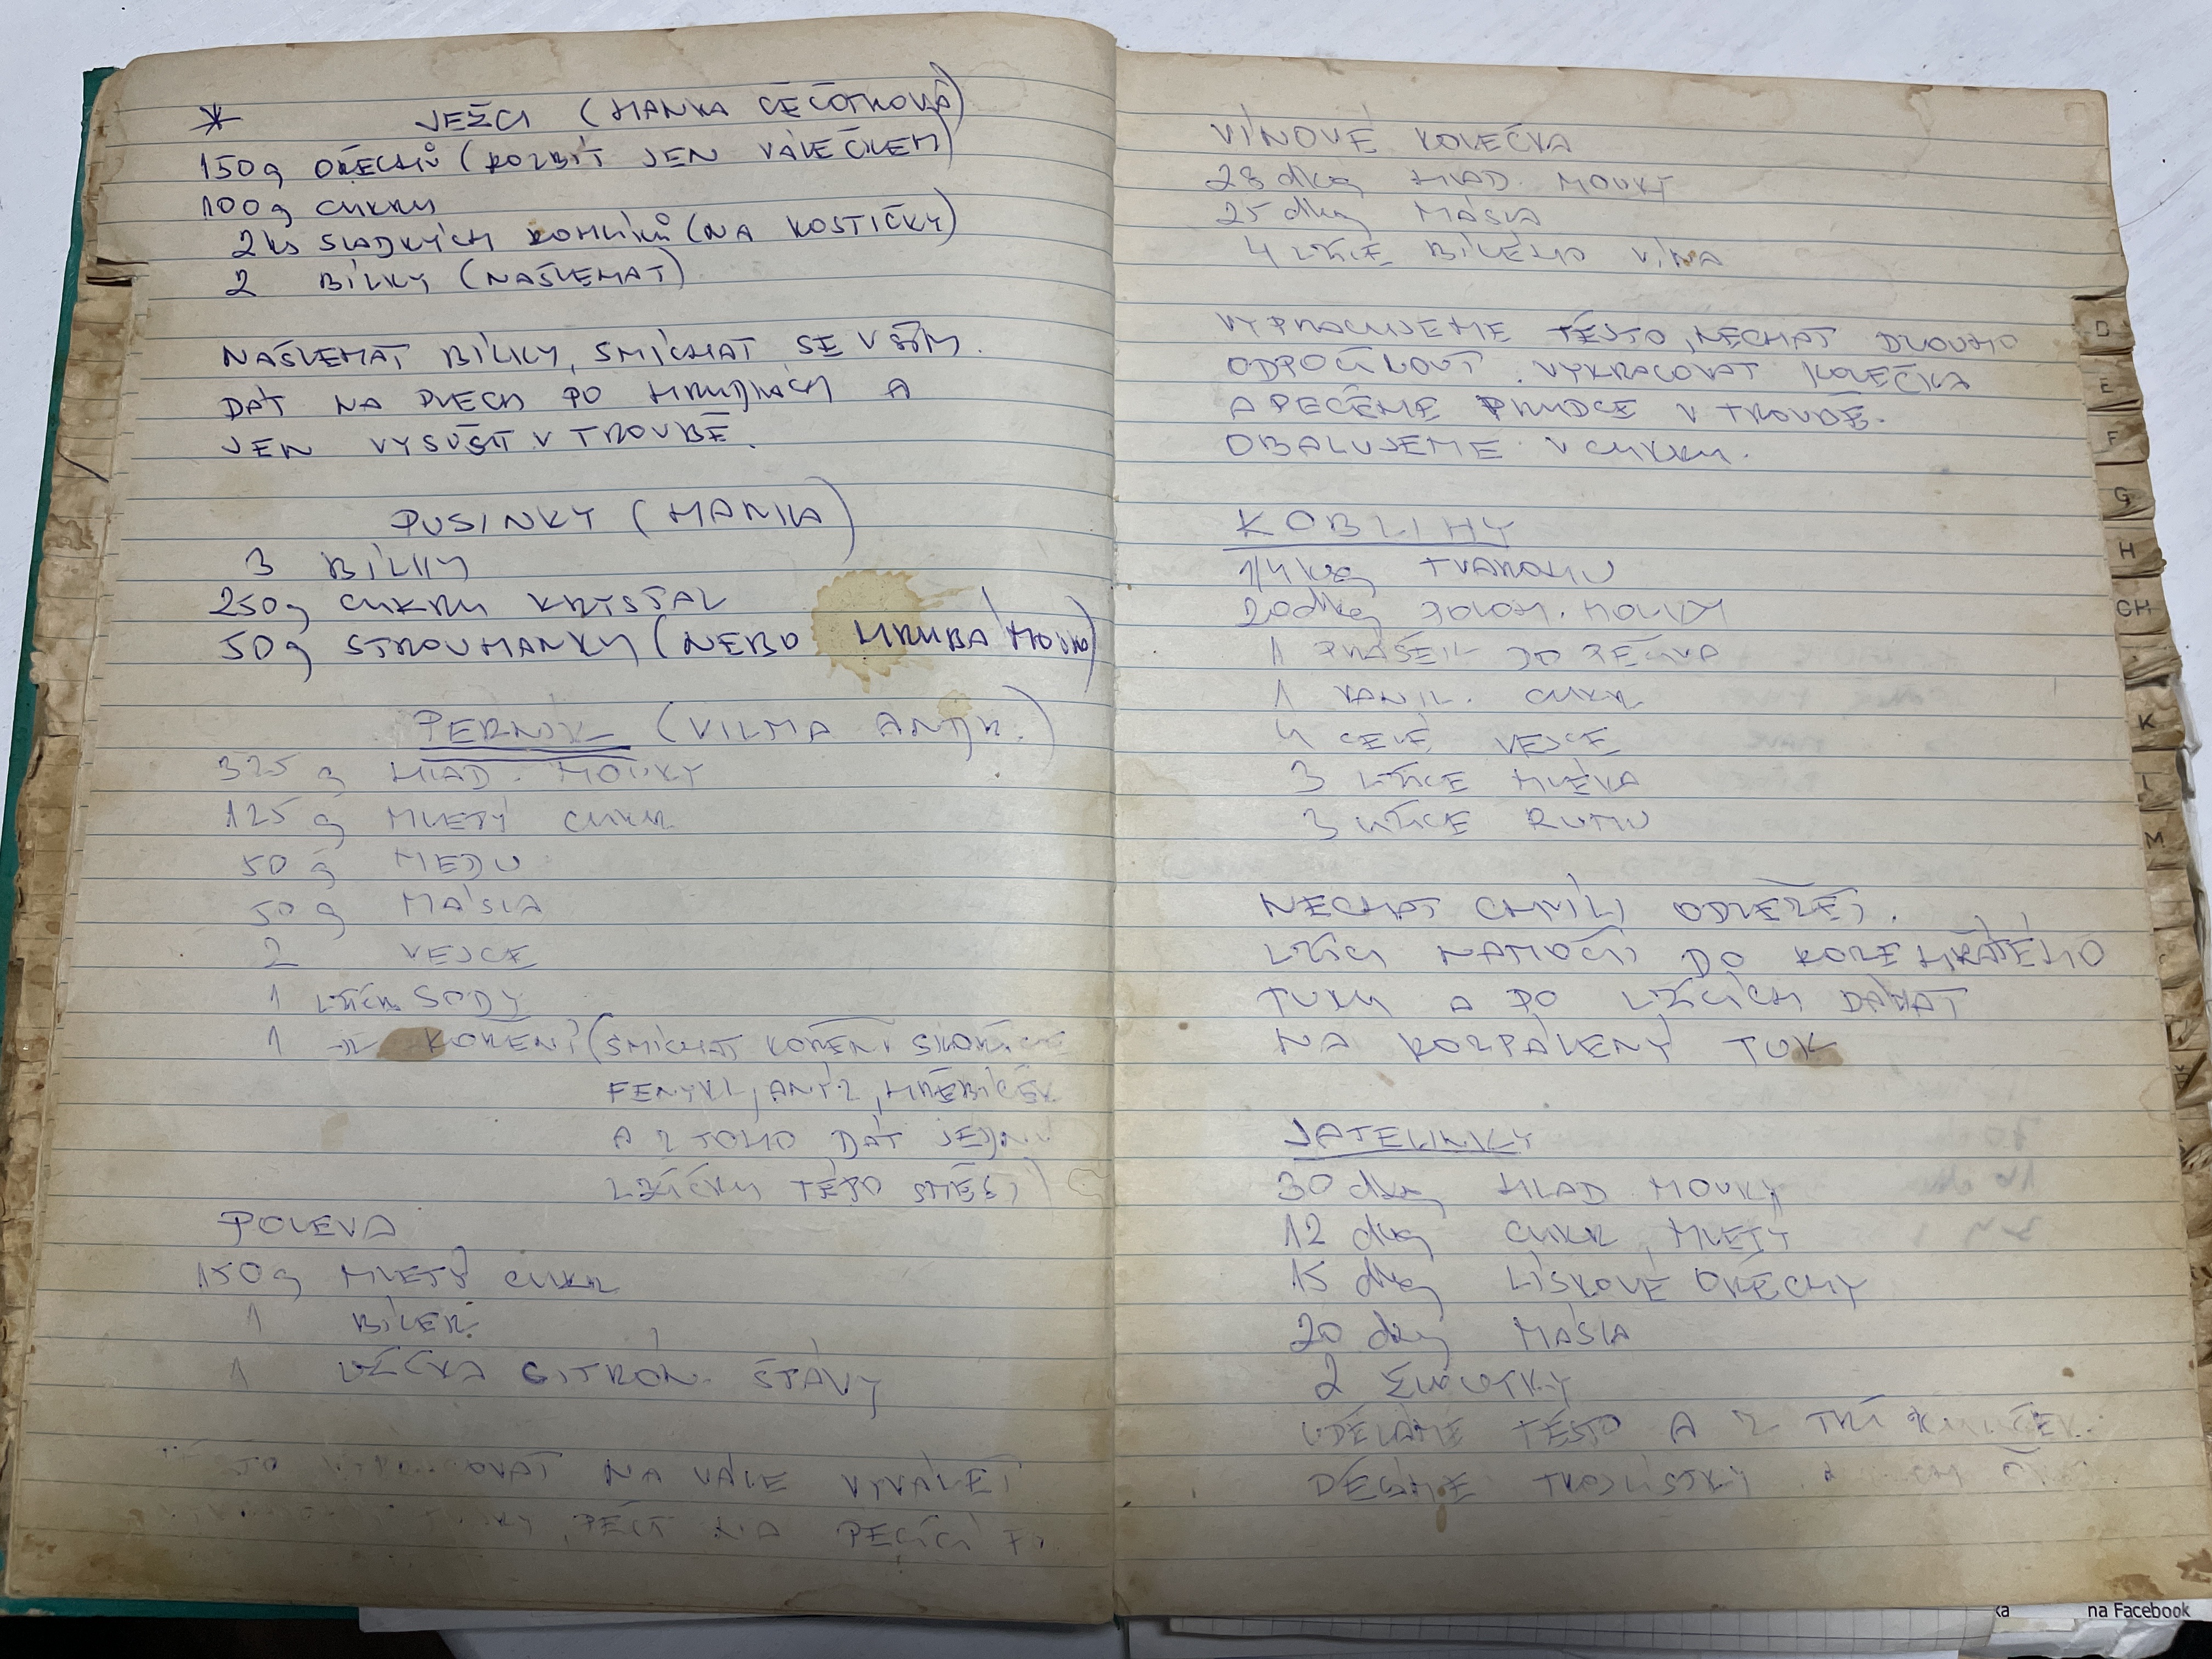 *
JEŽCI (HANKA ČEČOTKOVÁ)
150g OŘECHŮ (DROBIT JEN VÁLEČKEM)
100g CUKRU
2 ks SLADKÝCH ROHLÍKŮ (NA KOSTIČKY)
2 BÍLKY (NAŠLEHAT)
NAŠLEHAT BÍLKY, SMÍCHAT SE VŠÍM.
DÁT NA PLECH PO HRUDKÁCH A
JEN VYSUŠIT V TROUBĚ.
PUSINKY (HANKA)
3 BÍLKY
250g CUKRU KRYSTAL
50g STROUHANKY (NEBO HRUBÁ MOUKA)
PERNÍK- (VILMA ANTK.)
325 g HLAD. MOUKY
125 g MLETÝ CUKR
50 g MEDU
50 g MÁSLA
2 VEJCE
1 LŽIČKU SODY
1 -"- KOŘENÍ (SMÍCHAT KOŘENÍ SKOŘICE
FENYKL, ANÝZ, HŘEBÍČEK
A Z TOHO DÁT JEDNU
LŽIČKU TÉTO SMĚSI)
POLEVA
150g MLETÝ CUKR
1 BÍLEK
1 LŽIČKA CITRON. ŠTÁVY
NA VÁLE VYVÁLET
VINOVÉ KOLEČKA
28 dkg HLAD. MOUKY
25 dkg MÁSLA
4 LŽÍCE BÍLÉHO VÍNA
VYPRACUJEME TĚSTO, NECHAT DLOUHO
ODPOČINOUT. VYKRACOVAT KOLEČKA
A PEČEME PRUDCE V TROUBĚ.
OBALUJEME V CUKRU.
KOBLIHY
1/4 kg TVAROHU
20dkg POLOH. MOUKY
1 PRÁŠEK DO PEČIVA
1 VANIL. CUKR
4 CELÉ VEJCE
3 LŽÍCE MLÉKA
3 LŽÍCE RUMU
NECHAT CHVÍLI ODLEŽET.
LŽÍCI NAMOČIT DO ROZEHŘÁTÉHO
TUKU A PO LŽÍCÍCH DÁVAT
NA ROZPÁLENÝ TUK
JATELINKY
30 dkg HLAD. MOUKY
12 dkg CUKR MLETÝ
15 dkg LÍSKOVÉ OŘECHY
20 dkg MÁSLA
2 ŽLOUTKY
UDĚLÁME TĚSTO A Z TŘÍ KULIČEK
DĚLÁME TROJLÍSTKY
D
E
F
G
H
CH
K
L
M
na Facebook